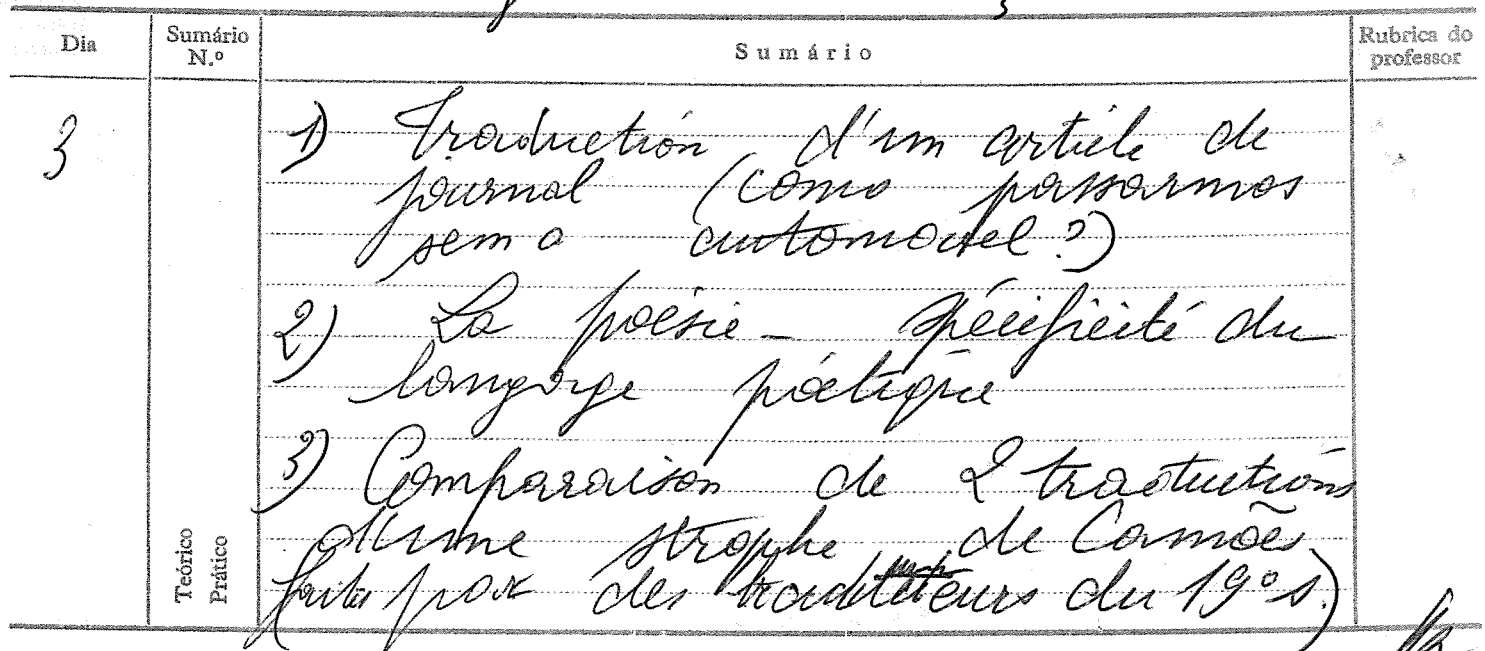 Dia
Sumário N.º
Sumário
Rubrica do professor
3
1) Traduction d'un article de
journal (como passarmos
sem o automóvel?)
2) La poésie - spécificité du
langage poétique
3) Comparaison de 2 traductions
d'une strophe de Camões
(faites par des traducteurs du 19º s.)
Teórico
Prático